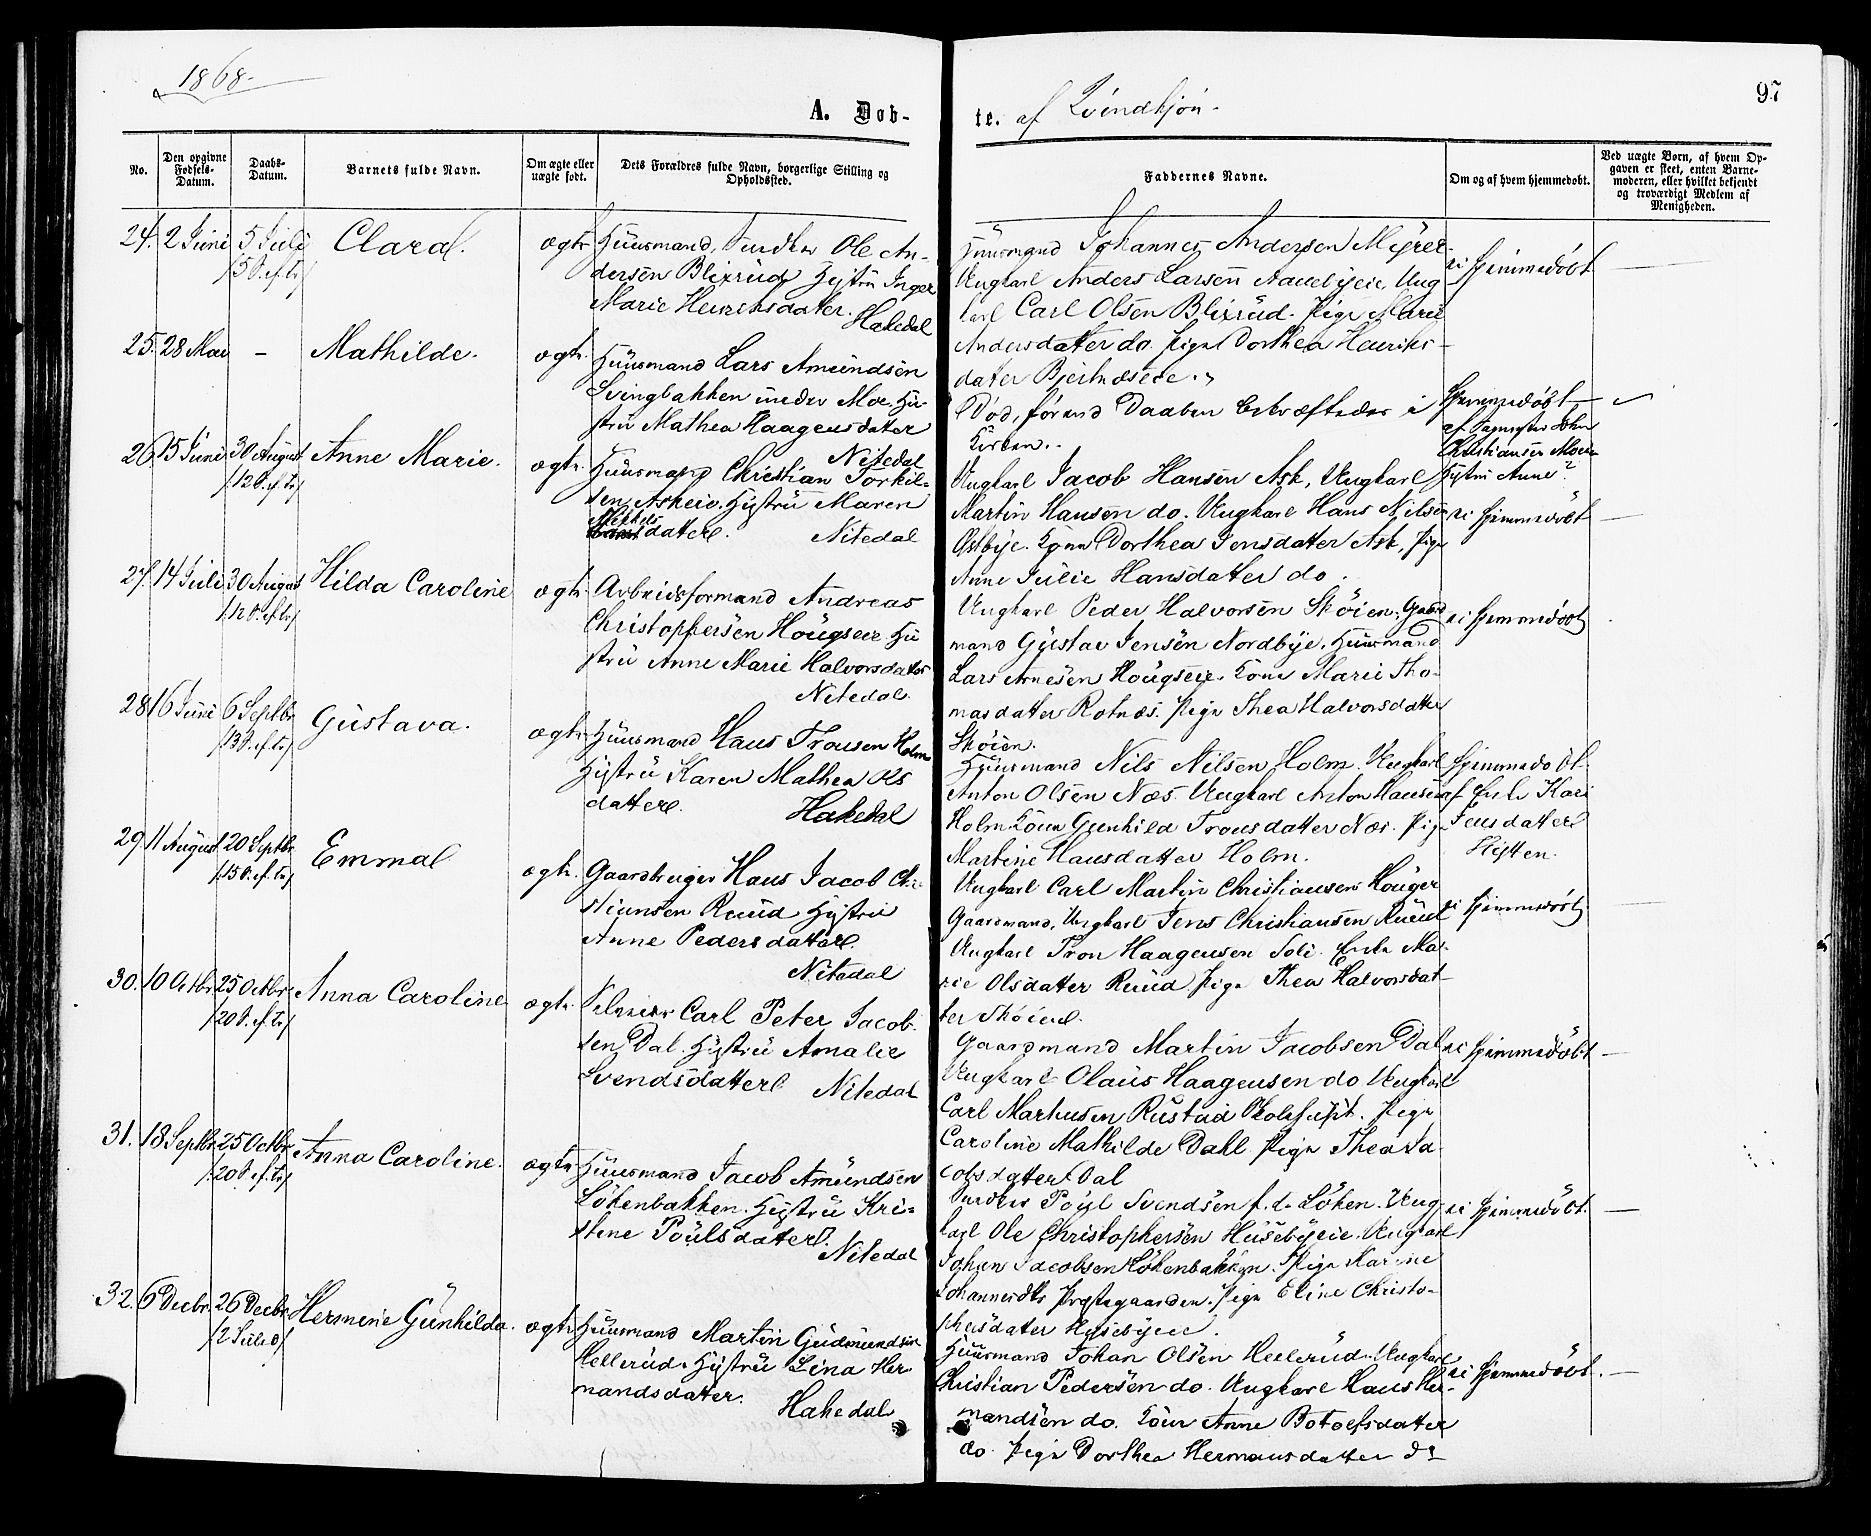 1868
97
A. Døb-
te. af Qvindkjøn
No.
Den opgivne Fødsels-Datum.
Daabs-Datum.
Barnets fulde Navn.
Om ægte eller uægte født.
Dets Forældres fulde Navn, borgerlige Stilling og Opholdssted.
Faddernes Navne.
Om og af hvem hjemmedøbt.
Ved uægte Børn, af hvem Op-
gaven er skeet, enten Barne-
moderen, eller hvilket bekjendt
og troværdigt Medlem af
Menigheden.
24. 2 Juni 5 Juli Clara. ægte
/5 S. ef. tr/
Huusmand, Snedker Ole An-
dersen Blixrud Hustru Inger
Marie Henriksdatter.
Hakedal
Huusmand Johannes Andersen Myrer
Ungkarl Anders Larsen Aanebyeie, Ung
karl Carl Olsen Blixrud. Pige Marie
Andersdatter do. Pige Dorthea Henriks-
dater
ei hjemmedøbt
25. 28 Mai - Mathilde. ægte.
Huusmand Lars Amundsen
Svingbakken under Moe. Hu-
stru Mathea Haagensdatter
Nitedal
Død, førend Daaben bekræftedes i
Kirken.
Hjemmedøbt
af John
Christiansen Moe
Hustru Anne
26 15 Juni 30 August Anne Marie. ægte.
/12 S. ef. tr/
Huusmand Christian Torkil-
sen Askeie. Hustru Maren
Mikkels
datter. Nitedal
Ungkarl Jacob Hansen Ask, Ungkarl
Martin Hansen do. Ungkarl Hans Nilsen
Østbye. Kone Dorthea Jensdatter Ask, Pige
Anne Julie Hansdatter do.
ei hjemmedøbt
27. 14 Juli 30 August Hilda Caroline ægte.
/12 S. ef. tr/
Arbeidsformand Andreas
Christophersen Hougseie. Hu
stru Anne Marie Halvorsdatter
Nitedal
Ungkarl Peder Halvorsen Skøien. Gaard
mand Gustav Jensen Nordbye. Huusmand
Lars Arnesen Hougseie. Kone Marie Tho-
masdatter Rotnæs. Pige Thea Halvorsdatter
Skøien.
ei hjemmedøbt
28 16 Juni 6 Septbr Gustava. ægte
/13 S. ef. tr/
Huusmand Hans Tronsen Holm
Hustru Karen Mathea Ols
datter.
Hakedal
Huusmand Nils Nilsen Holm. Ungkarl
Anton Olsen Næs. Ungkarl Anton Hansen
Holm. Kone Gunhild Tronsdatter Næs. Pige
Martine Hansdatter Holm.
hjemmedøbt
af Enke Kari
Jensdatter
29 11 August 20 Septbr Emma ægte.
/15 S. ef. tr/
Gaardbruger Hans Jacob Chri-
stiansen Ruud Hustru
Anne Pedersdatter.
Nitedal
Ungkarl Carl Martin Christiansen Houger
Gaardmand, Ungkarl Jens Christiansen Ruud
Ungkarl Tron Haagensen Soli. Enke Ma-
rie Olsdatter Ruud Pige Thea Halvorsdat-
ter Skøien.
ei hjemmedøbt
30. 10 Octbr 25 Octbr Anna Caroline ægte.
/20 S. ef. tr/
Carl Peter Jacob
sen Dal. Hustru Amalie
Svendsdatter. Nitedal
Gaardmand Martin Jacobsen Dal
Ungkarl Olaus Haagensen do Ungkarl
Carl Marhusen Rustad Pige
Caroline Mathilde Dahl Pige Thea Ja-
cobsdatter Dal
ei hjemmedøbt
31. 18 Septbr 25 Octbr Anna Caroline. ægte
/20 S. ef. tr/
Huusmand Jacob Amundsen
Løkenbakken. Hustru Kri-
stine Poulsdatter.
Nitedal
Snedker Poul Svendsen f. d. Løken. Ung-
karl Ole Christophersen Husebyeie. Ungkarl
Johan Jacobsen Løkenbakken. Pige Karine
Johannesdtr Præstegaarden. Pige Eline Christo-
phersdatter Husebyeie.
ei hjemmedøbt.
32. 6 Decbr 26 Decbr Hermine Gunhilda. ægte
/2 Juled/
Huusmand Martin Gudmundsen
Hellerud. Hustru Lina Her
mandsdatter.
Hakedal
Huusmand Johan Olsen Hellerud. Ungkarl
Christian Pedersen do. Ungkarl Hans Her-
mandsen do. Kone Anne Botolfsdatter
do. Pige Dorthea Hermansdatter do
ei hjemmedøbt.